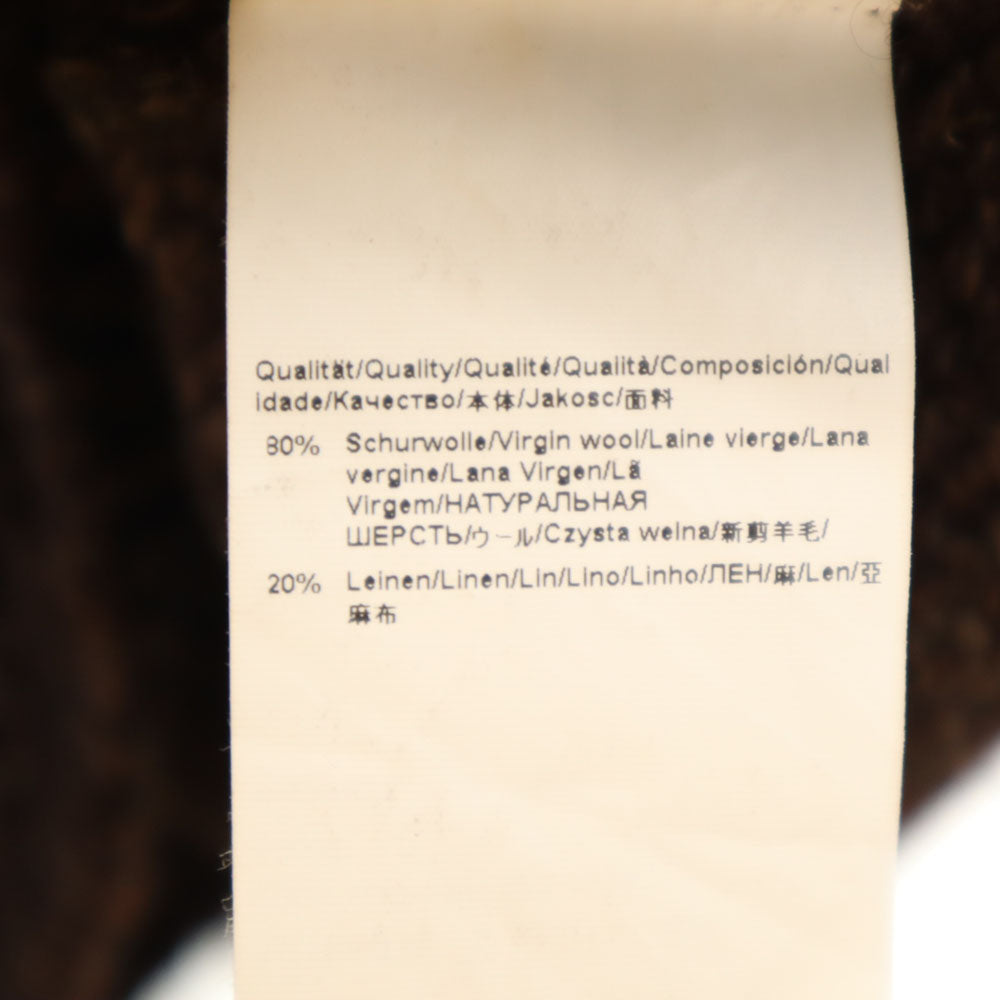 Qualität/Quality/Qualité/Qualità/Composición/Qual
idade/Качество/本体/Jakosc/面料
80% Schurwolle/Virgin wool/Laine vierge/Lana
vergine/Lana Virgen/Lã
Virgem/НАТУРАЛЬНАЯ
ШЕРСТЬ/ウール/Czysta welna/新剪羊毛/
20% Leinen/Linen/Lin/Lino/Linho/ЛЕН/麻/Len/亞
麻布